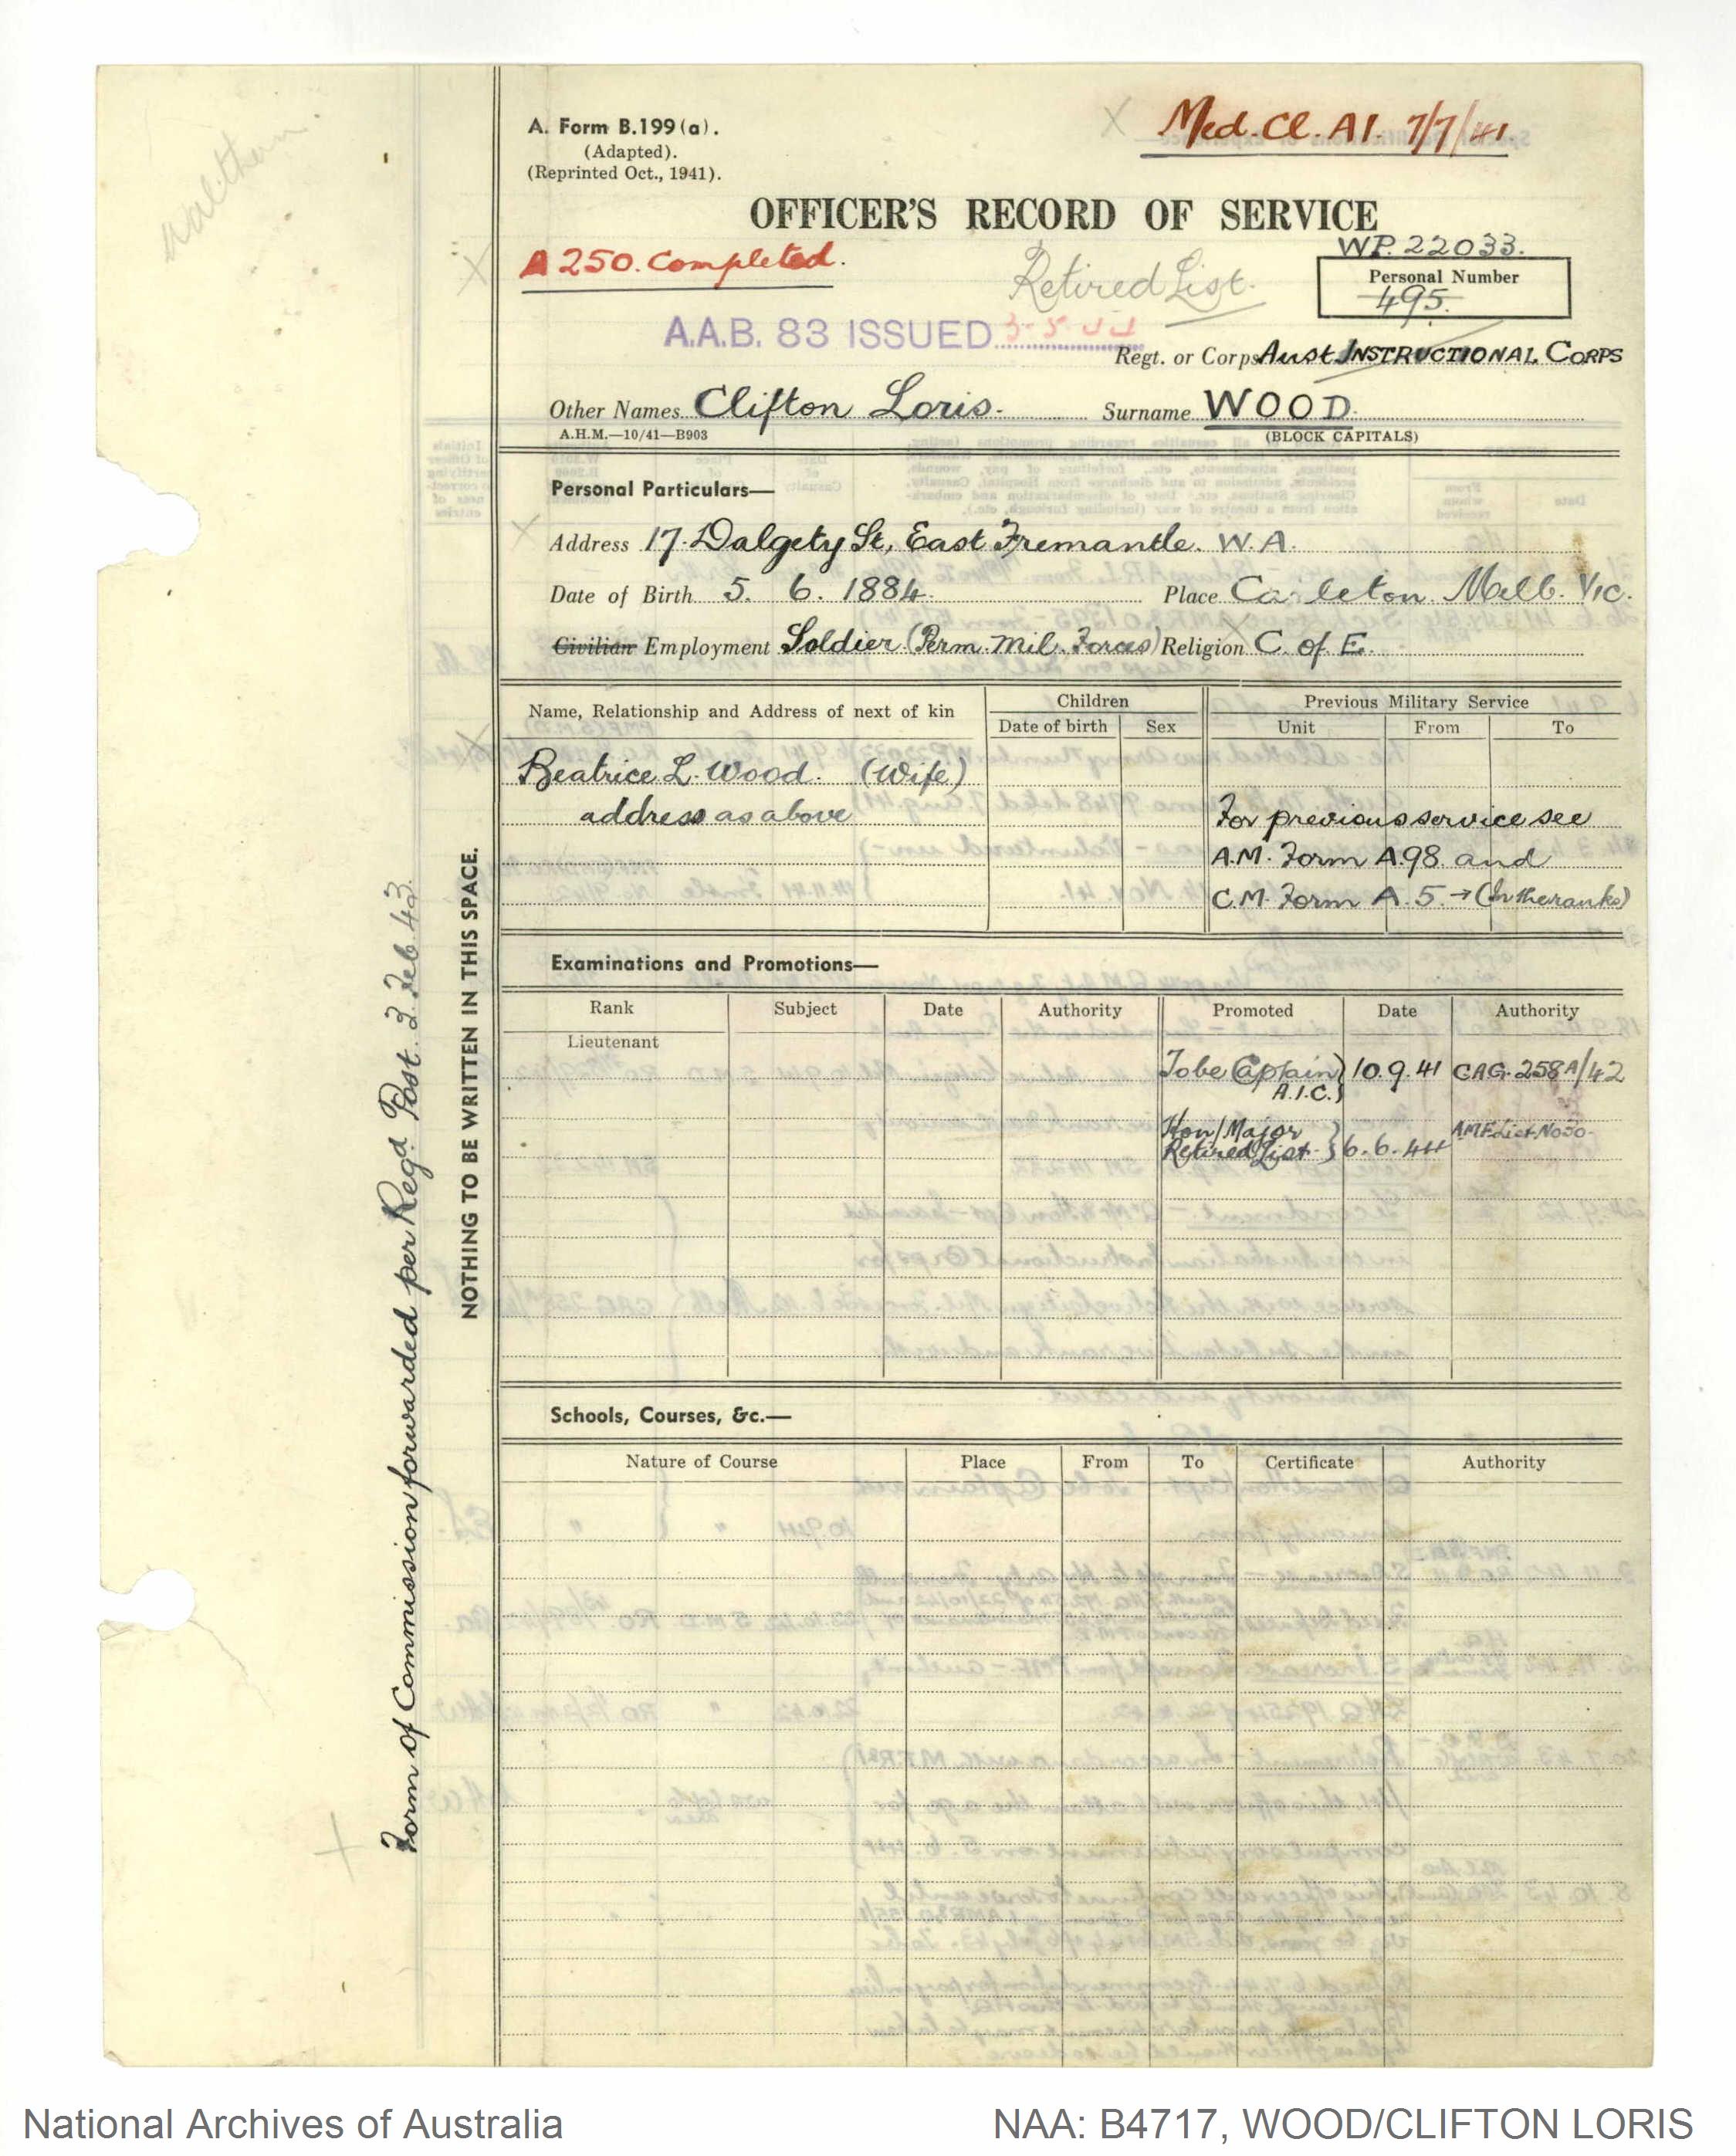 Walthem.
A. Form B.199 (a).
(Adapted).
(Reprinted Oct., 1941).
Med. Cl. A1. 7/7/41.
OFFICER'S RECORD OF SERVICE
A 250. Completed.
Retired List.
WP. 22033.
Personal Number
495.
A.A.B. 83 ISSUED 3-5-44
Regt. or Corps Aust. INSTRUCTIONAL CORPS
Other Names Clifton Loris. Surname WOOD.
A.H.M.—10/41—B903
(BLOCK CAPITALS)
Personal Particulars—
Address 17. Dalgety St, East Fremantle. W.A.
Date of Birth 5. 6. 1884. Place Carleton. Melb. Vic.
Civilian Employment Soldier (Perm. Mil. Forces) Religion C. of E.
Name, Relationship and Address of next of kin
Children
Previous Military Service
Date of birth Sex Unit From To
Beatrice L. Wood. (Wife)
address as above
For previous service see
A.M. Form A.98. and
C.M. Form A. 5. → (In the ranks)
Examinations and Promotions—
Rank Subject Date Authority Promoted Date Authority
Lieutenant
To be Captain } 10.9.41 CAG. 258A/42
A.I.C.
Hon/Major
Retired List. } 6.6.44 AMF List No 30.
Schools, Courses, &c.—
Nature of Course Place From To Certificate Authority
NOTHING TO BE WRITTEN IN THIS SPACE.
Form of Commission forwarded per Regd. Post. 2. Feb. 43.
National Archives of Australia
NAA: B4717, WOOD/CLIFTON LORIS